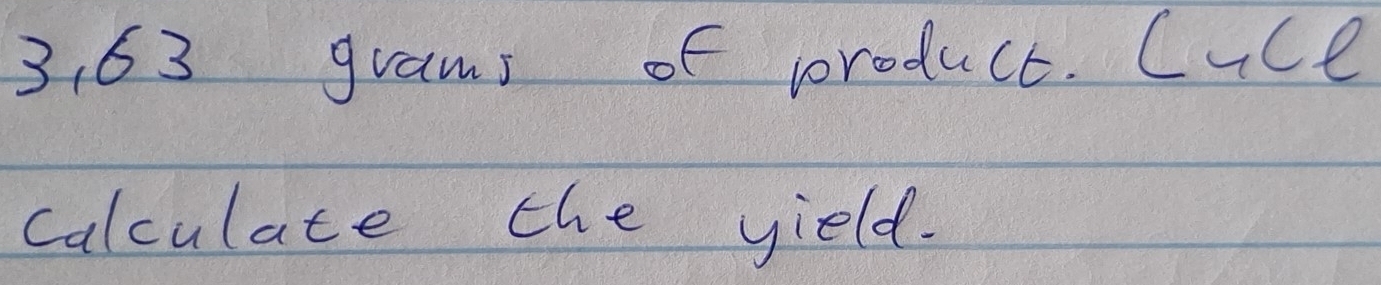 3,63 grams of product. CuCl
calculate the yield.